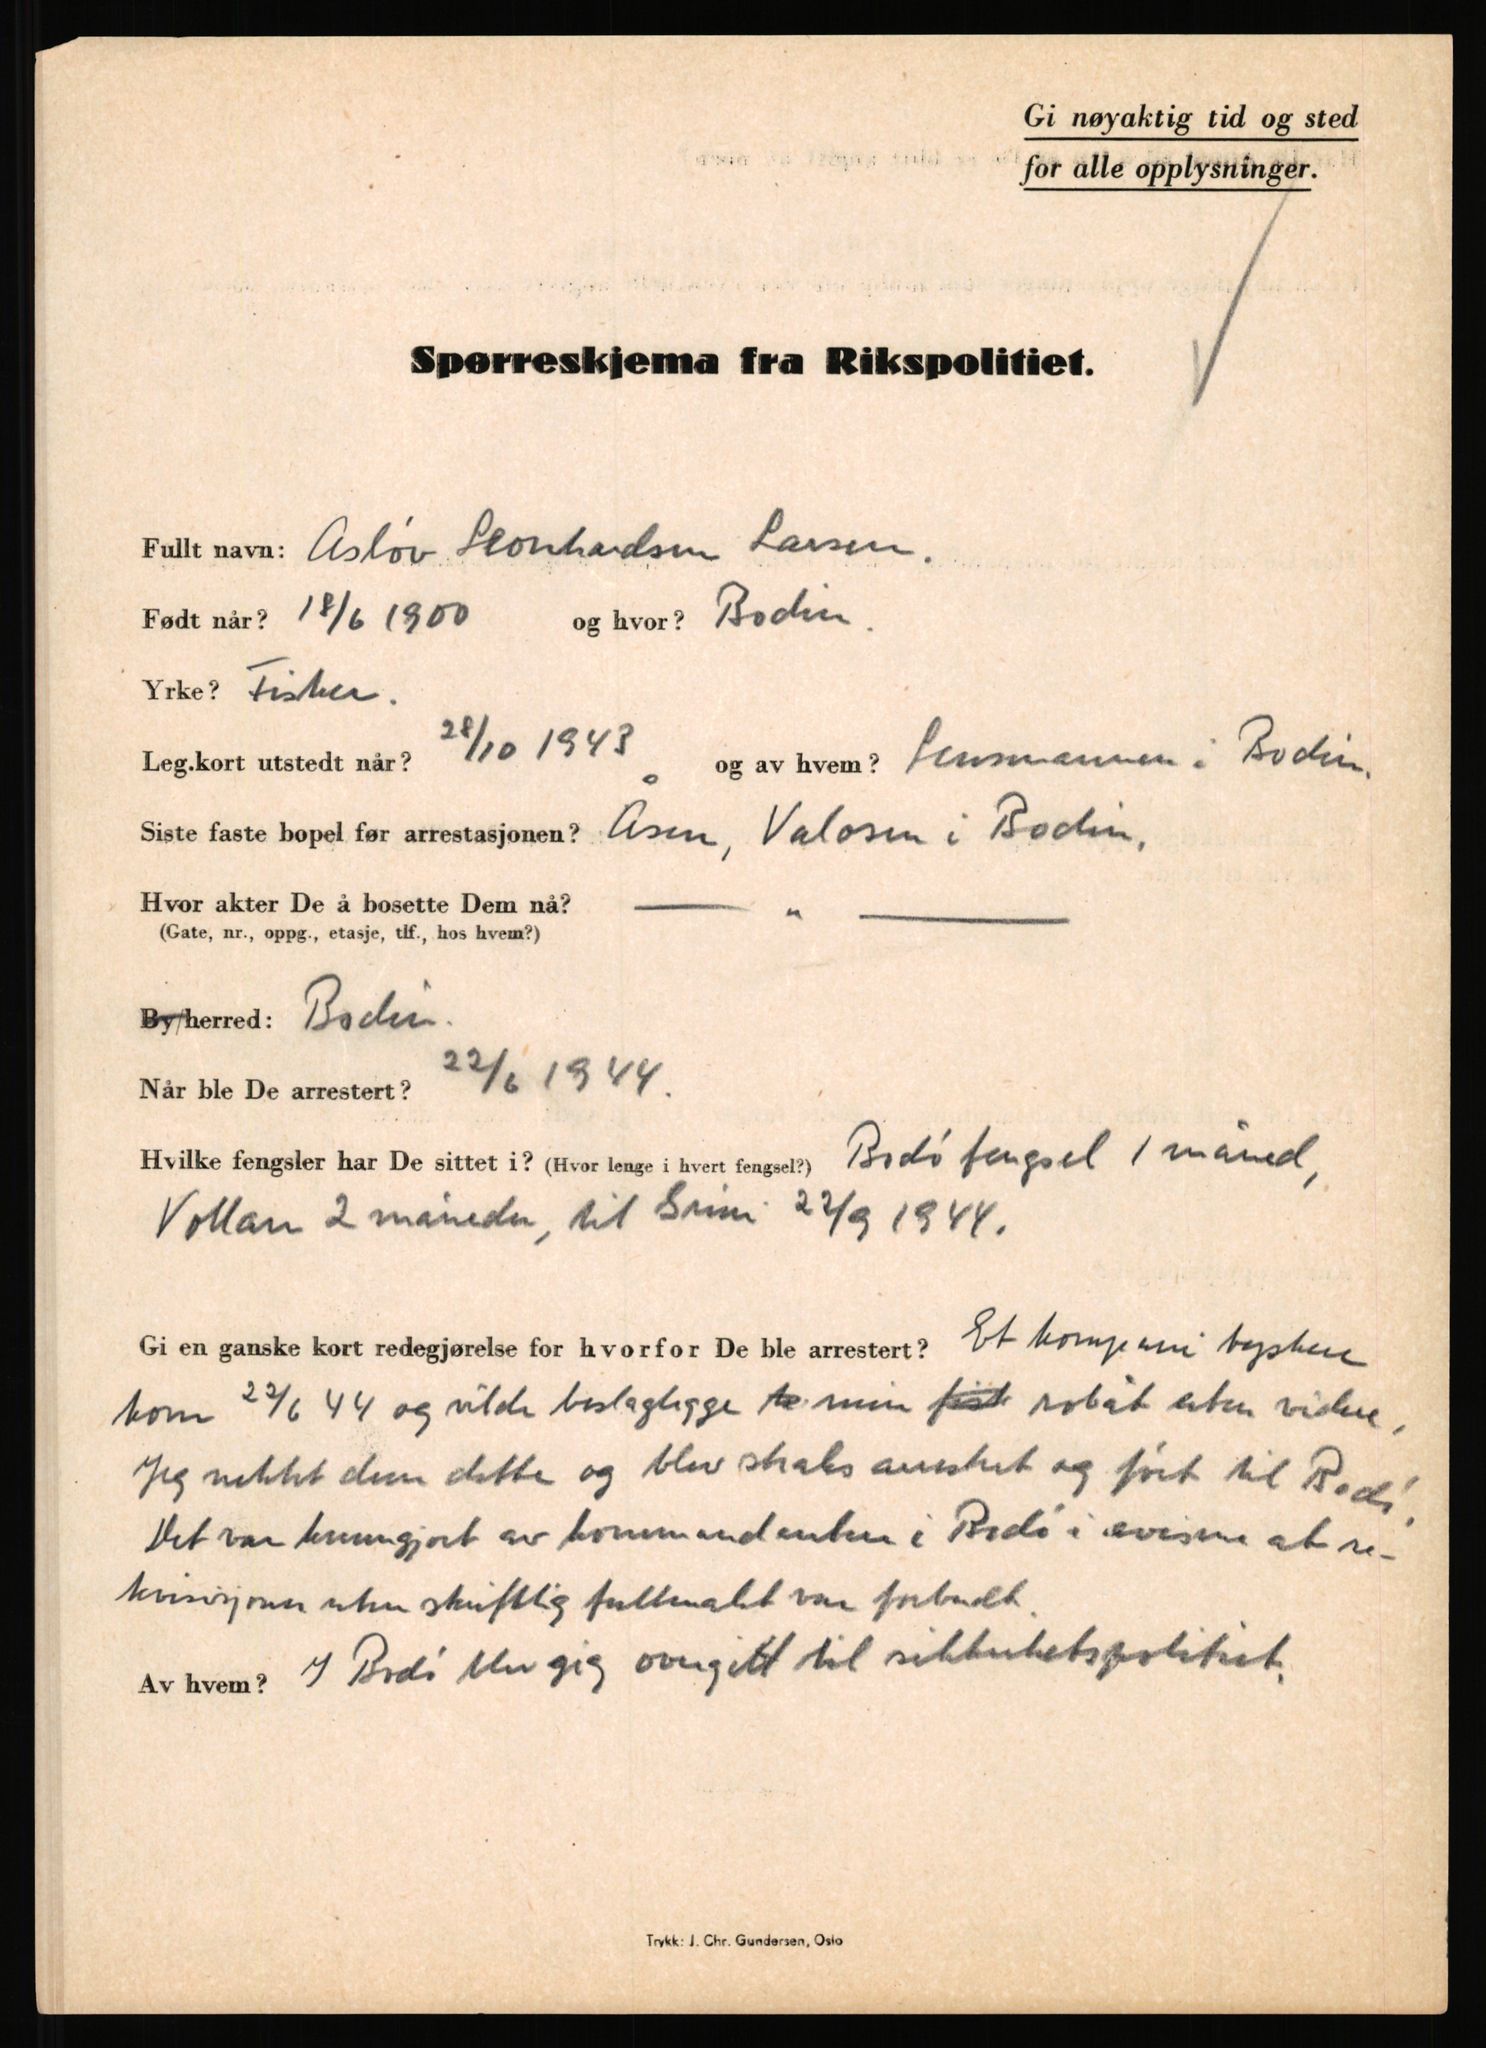 Gi nøyaktig tid og sted
for alle opplysninger.
Spørreskjema fra Rikspolitiet.
Fullt navn: Asløv Leonhardsen Larsen.
Født når? 18/6 1900 og hvor? Bodin.
Yrke? Fisker.
Leg.kort utstedt når? 28/10 1943 og av hvem? Lensmannen i Bodin.
Siste faste bopel før arrestasjonen? Åsen, Valosen i Bodin.
Hvor akter De å bosette Dem nå? — " —
(Gate, nr., oppg., etasje, tlf., hos hvem?)
By/herred: Bodin.
Når ble De arrestert? 22/6 1944.
Hvilke fengsler har De sittet i? (Hvor lenge i hvert fengsel?) Bodø fengsel 1 måned,
Vollan 2 måneder, til Grini 22/9 1944.
Gi en ganske kort redegjørelse for hvorfor De ble arrestert? Et kompani tyskere
kom 22/6 44 og vilde beslaglegge min robåt uten videre.
Jeg nektet dem dette og blev straks arrestert og ført til Bodø.
Det var kunngjort av kommandanten i Bodø i avisene at re-
kvisisjoner uten skriftlig fullmakt var forbudt.
Av hvem? I Bodø blev jeg overgitt til sikkerhetspolitiet.
Trykk: J. Chr. Gundersen, Oslo